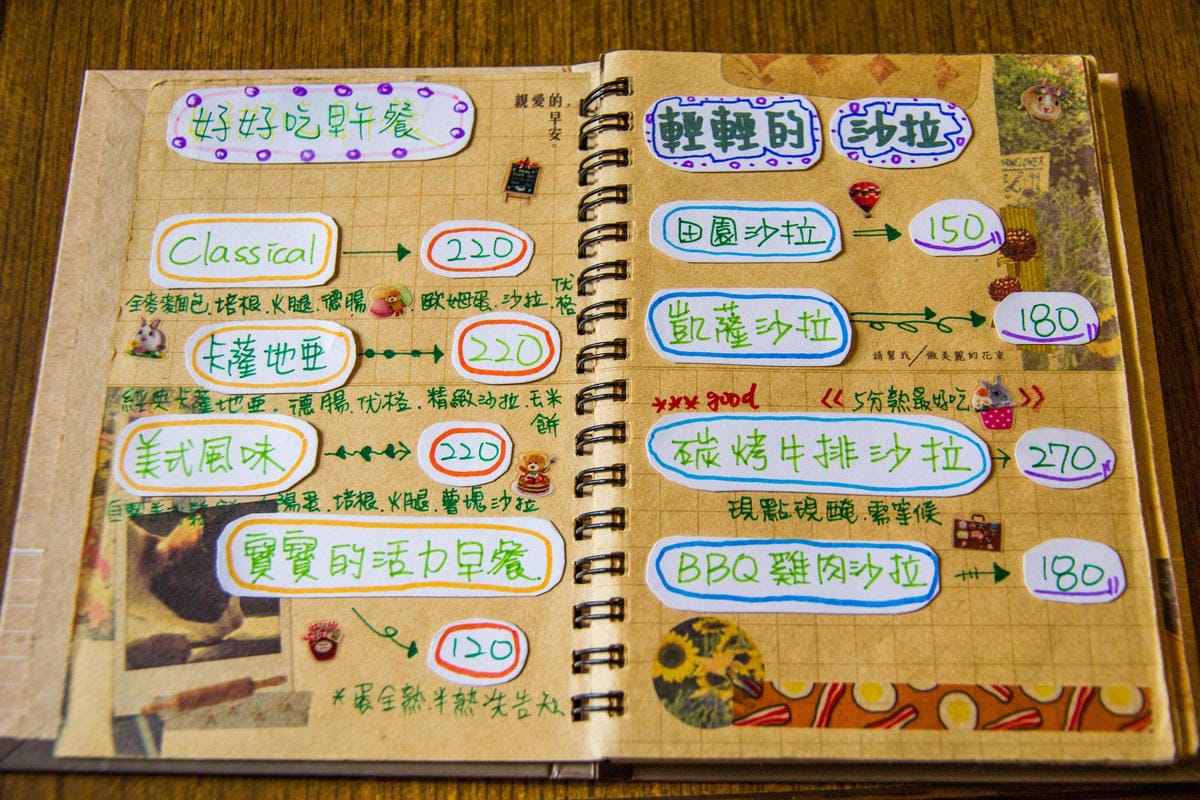 好好吃早午餐
親愛的，
早安。
Classical 220
全麥麵包.培根.火腿.德腸.歐姆蛋.沙拉.优格
卡薩地亞 220
經典卡薩地亞.德腸.优格.精緻沙拉.玉米餅
美式風味 220
腸蛋.培根.火腿.薯塊.沙拉
寶寶的活力早餐
120
*蛋全熟.半熟先告知
輕輕的 沙拉
田園沙拉 150
凱薩沙拉 180
請幫我／做美麗的花束
*** good 《5分熟最好吃》
碳烤牛排沙拉 270
現點現醃.需等候
BBQ雞肉沙拉 180